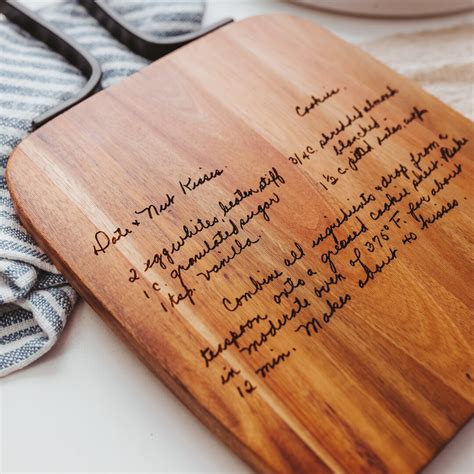 Date & Nut Kisses.
Cookies
2 egg whites, beaten stiff
1 c. granulated sugar
1 tsp. vanilla
3/4 c. shredded almond
blanched.
1 1/2 c. pitted dates, cup
Combine all ingredients & drop from a
teaspoon onto a greased cookie sheet. Bake
in moderate oven of 375° F. for about
12 min. Makes about 40 kisses